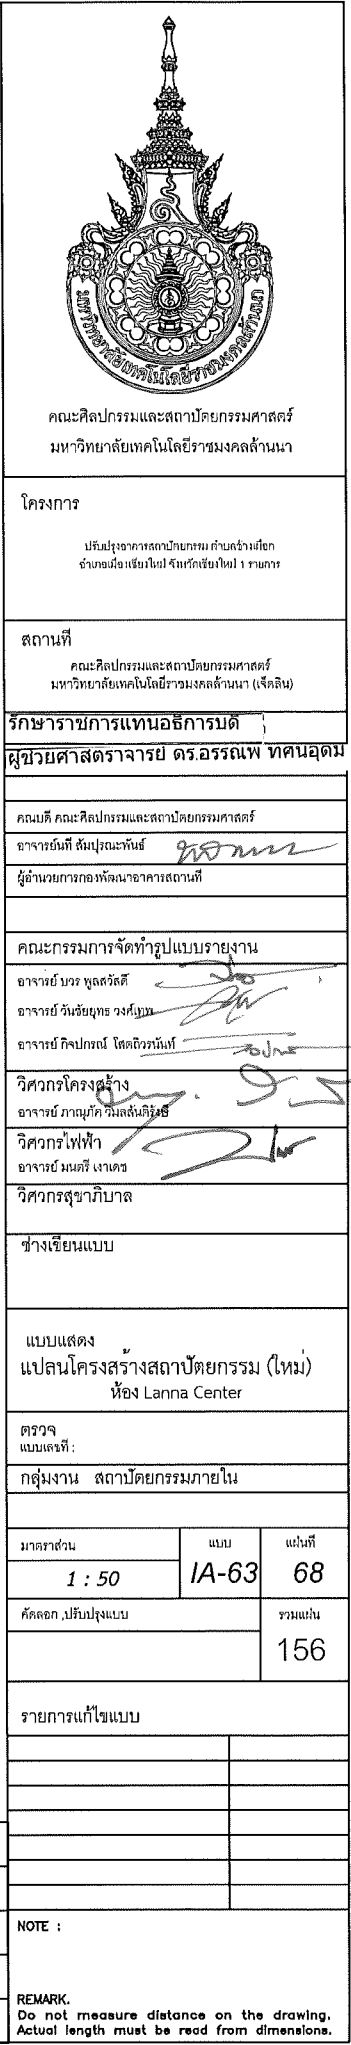 มหาวิทยาลัยเทคโนโลยีราชมงคลล้านนา
คณะศิลปกรรมและสถาปัตยกรรมศาสตร์
มหาวิทยาลัยเทคโนโลยีราชมงคลล้านนา
โครงการ
ปรับปรุงอาคารสถาปัตยกรรม ตำบลช้างเผือก
อำเภอเมืองเชียงใหม่ จังหวัดเชียงใหม่ 1 รายการ
สถานที่
คณะศิลปกรรมและสถาปัตยกรรมศาสตร์
มหาวิทยาลัยเทคโนโลยีราชมงคลล้านนา (เจ็ดลิน)
รักษาราชการแทนอธิการบดี
ผู้ช่วยศาสตราจารย์ ดร.อรรณพ ทัศนอุดม
คณบดี คณะศิลปกรรมและสถาปัตยกรรมศาสตร์
อาจารย์นที สัมปุรณะพันธ์
ผู้อำนวยการกองพัฒนาอาคารสถานที่
คณะกรรมการจัดทำรูปแบบรายงาน
อาจารย์ บวร พูลสวัสดิ์
อาจารย์ วันชัยยุทธ วงศ์เทพ
อาจารย์ กิจปกรณ์ โสตถิวรนันท์
วิศวกรโครงสร้าง
อาจารย์ ภาณุภัค วิมลสันติรังษี
วิศวกรไฟฟ้า
อาจารย์ มนตรี เงาเดช
วิศวกรสุขาภิบาล
ช่างเขียนแบบ
แบบแสดง
แปลนโครงสร้างสถาปัตยกรรม (ใหม่)
ห้อง Lanna Center
ตรวจ
แบบเลขที่ :
กลุ่มงาน สถาปัตยกรรมภายใน
มาตราส่วน แบบ แผ่นที่
1 : 50 IA-63 68
คัดลอก ,ปรับปรุงแบบ รวมแผ่น
156
รายการแก้ไขแบบ
NOTE :
REMARK.
Do not measure distance on the drawing.
Actual length must be read from dimensions.